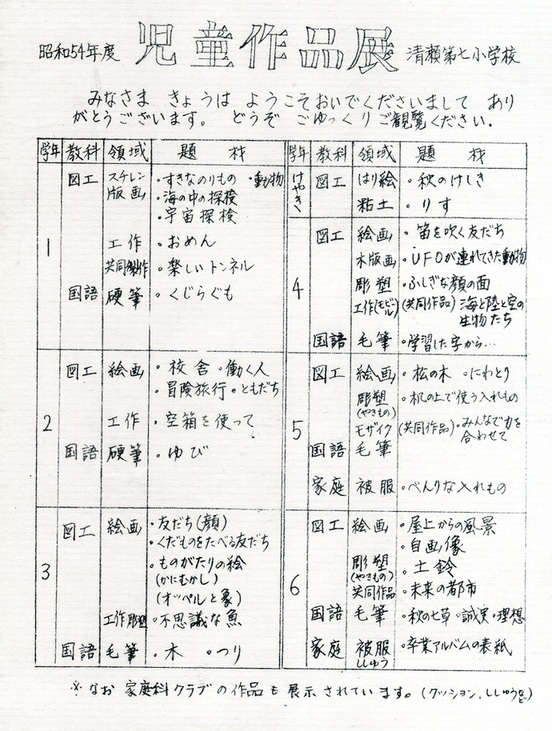 昭和54年度 児童作品展 清瀬第七小学校
みなさま きょうは ようこそおいでくださいまして あり
がとうございます。 どうぞ ごゆっくりご観覧ください。
学年 教科 領域 題材
1 図工 スチレン版画 ・すきなのりもの ・動物
・海の中の探検
・宇宙探検
工作 ・おめん
共同製作 ・楽しいトンネル
国語 硬筆 ・くじらぐも
2 図工 絵画 ・校舎 ・働く人
・冒険旅行 ・ともだち
工作 ・空箱を使って
国語 硬筆 ・ゆび
3 図工 絵画 ・友だち(顔)
・くだものをたべる友だち
・ものがたりの絵
(かにむかし)
(オッペルと象)
工作 彫塑 ・不思議な魚
国語 毛筆 ・木 ・つり
学年 教科 領域 題材
けやき 図工 はり絵 ・秋のけしき
粘土 ・りす
4 図工 絵画 ・笛を吹く友だち
木版画 ・UFOが連れてきた動物
彫塑 ・ふしぎな顔の面
工作(モビール) (共同作品) 海と陸と空の
生物たち
国語 毛筆 ・学習した字から…
5 図工 絵画 ・松の木 ・にわとり
彫塑 ・机の上で使う入れもの
(やきもの)
モザイク (共同作品) ・みんなで力を
合わせて
国語 毛筆
家庭 被服 ・べんりな入れもの
6 図工 絵画 ・屋上からの風景
・自画像
彫塑 ・土鈴
(やきもの)
共同作品 ・未来の都市
国語 毛筆 ・秋の七草 ・誠実 ・理想
家庭 被服 ・卒業アルバムの表紙
ししゅう
※なお 家庭科クラブの作品も展示されています。(クッション、ししゅうなど)